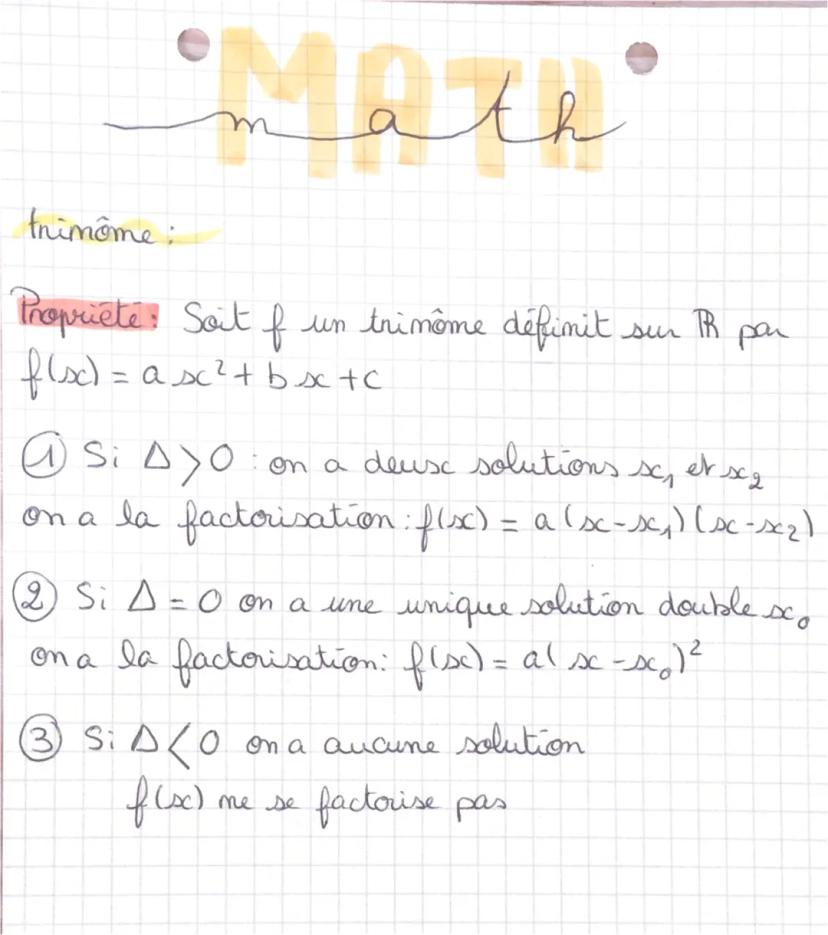 MATH
math
trinôme :
Propriété : Soit f un trinôme définit sur ℝ par
f(x) = ax² + bx + c
① Si Δ > 0 : on a deux solutions x₁ et x₂
on a la factorisation : f(x) = a(x-x₁)(x-x₂)
② Si Δ = 0 on a une unique solution double x₀
on a la factorisation : f(x) = a(x-x₀)²
③ Si Δ < 0 on a aucune solution
f(x) ne se factorise pas